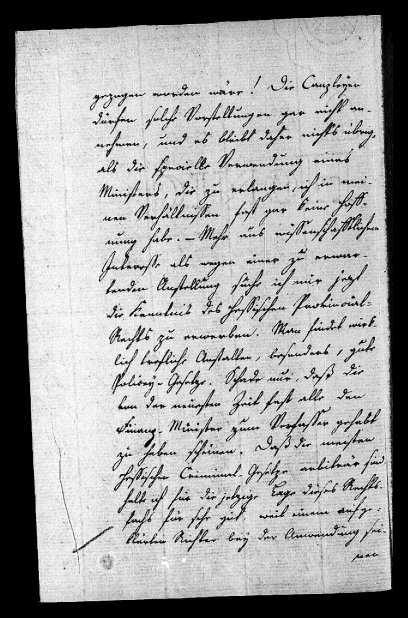 gezogen worden wäre! Die Canzleyen
dürfen solche Vorstellungen gar nicht an-
nehmen, und es bleibt daher nichts übrig,
als die specielle Verwendung eines
Ministers, die zu erlangen, ich in mei-
nen Verhältnissen fast gar keine Hoff-
nung habe. – Mehr aus wissenschaftlichem
Interesse als wegen einer zu erwar-
tenden Anstellung suche ich mir jetzt
die Kenntnis des Hessischen Provinzial-
Rechts zu erwerben. Man findet wirk-
lich treffliche Anstalten, besonders, gute
Policey-Gesetze. Schade nur, daß die
von der neuesten Zeit fast alle den
Finanz-Minister zum Verfasser gehabt
zu haben scheinen. Daß die meisten
Hessischen Criminal-Gesetze antiquirt sind
halt ich für die jetzige Lage dieses Rechts-
fachs für sehr gut, weil einem aufge-
klärten Richter bey der Anwendung sei-
nen